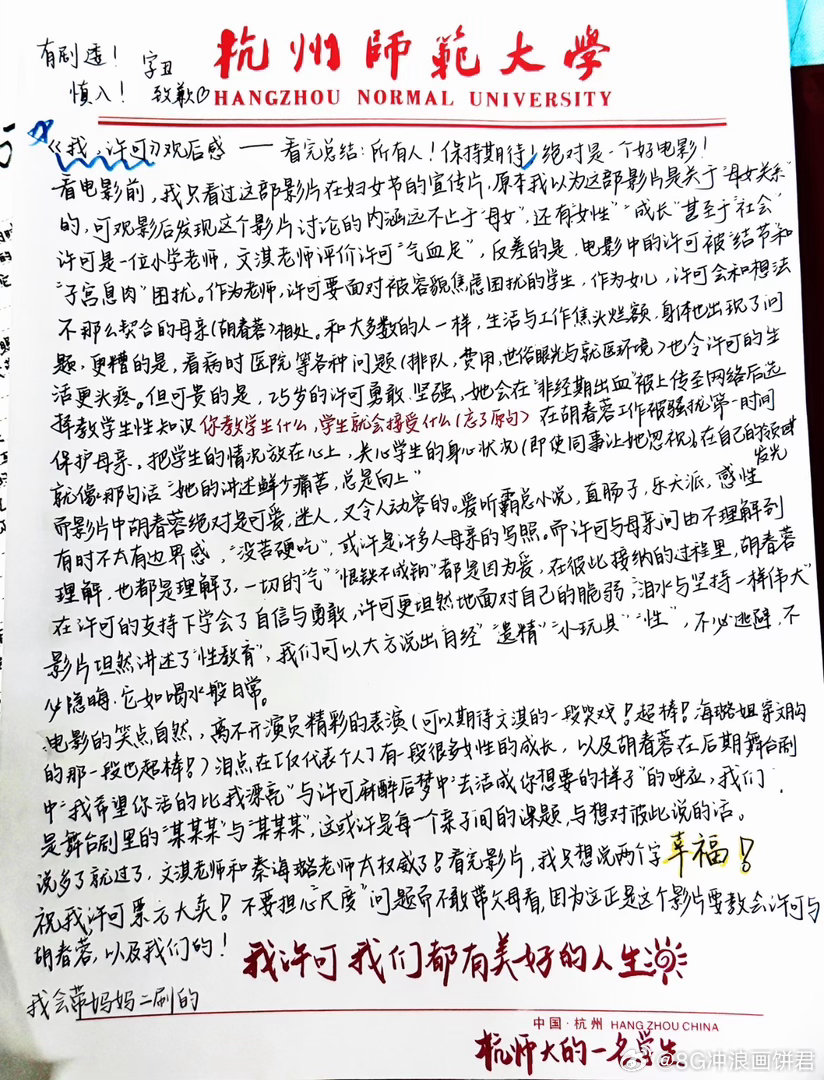 有剧透！ 字丑
慎入！ 致歉
杭州師範大學
HANGZHOU NORMAL UNIVERSITY
《我，许可》观后感 — 看完总结：所有人！保持期待！绝对是一个好电影！
看电影前，我只看过这部影片在妇女节的宣传片，原本我以为这部影片是关于“母女关系”
的，可观影后发现这个影片讨论的内涵远不止于“母女”，还有“女性”“成长”甚至于“社会”
许可是一位小学老师，文淇老师评价许可“气血足”，反差的是，电影中的许可被“结节和
“子宫息肉”困扰。作为老师，许可要面对被容貌焦虑困扰的学生，作为女儿，许可会和想法
不那么契合的母亲（胡春蓉）相处。和大多数的人一样，生活与工作焦头烂额，身体也出现了问
题，更糟的是，看病时医院等各种问题（排队，费用，世俗眼光与就医环境）也令许可的生
活更头疼。但可贵的是，25岁的许可勇敢、坚强，她会在“非经期出血”被上传至网络后选
择教学生性知识 你教学生什么，学生就会接受什么（忘了原句） 在胡春蓉工作被骚扰第一时间
保护母亲，把学生的情况放在心上，关心学生的身心状况（即使同事让她忽视），在自己的领域
发光
就像那句话“她的讲述鲜少痛苦，总是向上”
而影片中胡春蓉绝对是可爱，迷人，又令人动容的。爱听霸总小说，直肠子，乐天派，感性
有时不太有边界感，“没苦硬吃”，或许是许多人母亲的写照。而许可与母亲间由不理解到
理解，也都是理解了，一切的“气”“恨铁不成钢”都是因为爱，在彼此接纳的过程里，胡春蓉
在许可的支持下学会了自信与勇敢，许可更坦然地面对自己的脆弱，“泪水与坚持一样伟大”
影片坦然讲述了“性教育”，我们可以大方说出“月经”“遗精”“小玩具”“性”，不必逃避，不
必隐晦，它如喝水般日常。
电影的笑点自然，离不开演员精彩的表演（可以期待文淇的一段哭戏！超棒！海璐姐亲文胸
的那一段也超棒！）泪点在「仅代表个人」有一段很多女性的成长，以及胡春蓉在后期舞台剧
中“我希望你活的比我漂亮”与许可麻醉后梦中“去活成你想要的样子”的呼应，我们
是舞台剧里的“某某某”与“某某某”，这或许是每一个亲子间的课题，与想对彼此说的话。
说多了就过了，文淇老师和秦海璐老师太权威了！看完影片，我只想说两个字 幸福！
祝我许可票房大卖！不要担心“尺度”问题而不敢带父母看，因为这正是这个影片要教会许可与
胡春蓉，以及我们的！
我许可 我们都有美好的人生
我会带妈妈二刷的
中国·杭州 HANG ZHOU CHINA
杭师大的一名学生
@8G冲浪画饼君